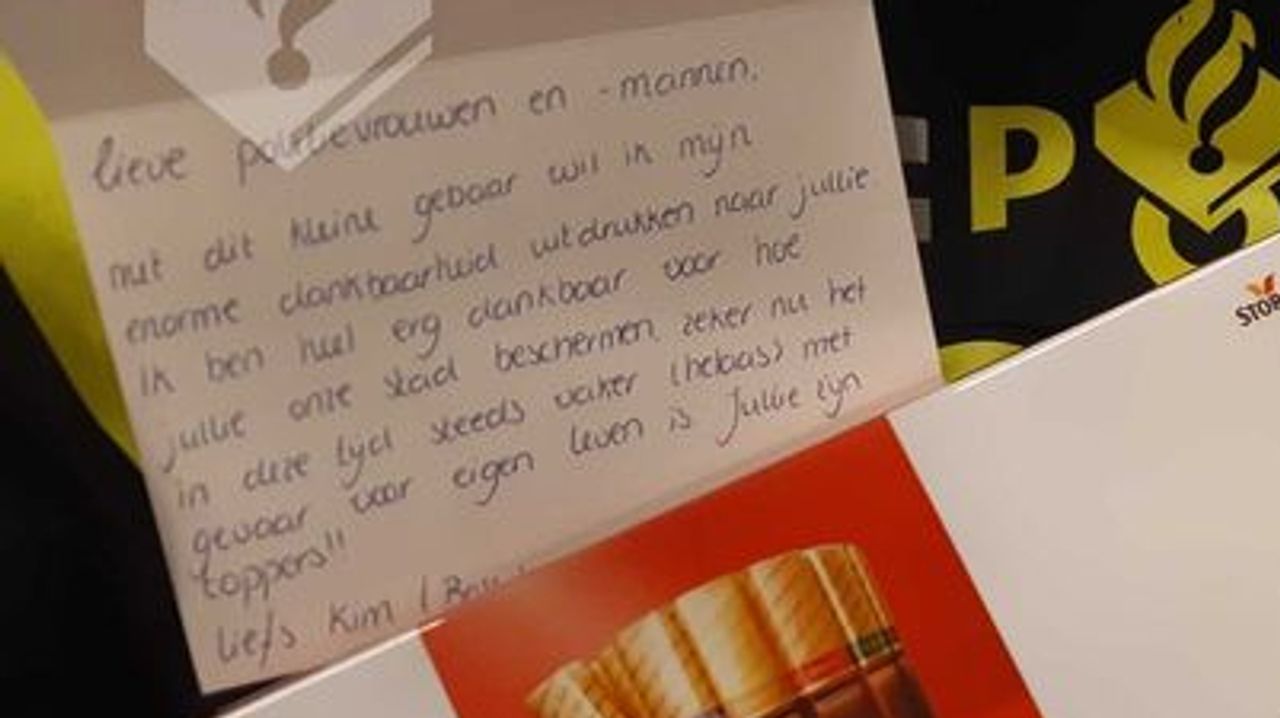 lieve politievrouwen en -mannen,
met dit kleine gebaar wil ik mijn
enorme dankbaarheid uitdrukken naar jullie
ik ben heel erg dankbaar voor hoe
jullie onze stad beschermen, zeker nu het
in deze tijd steeds vaker (helaas) met
gevaar voor eigen leven is Jullie zijn
toppers!!
liefs Kim (
P